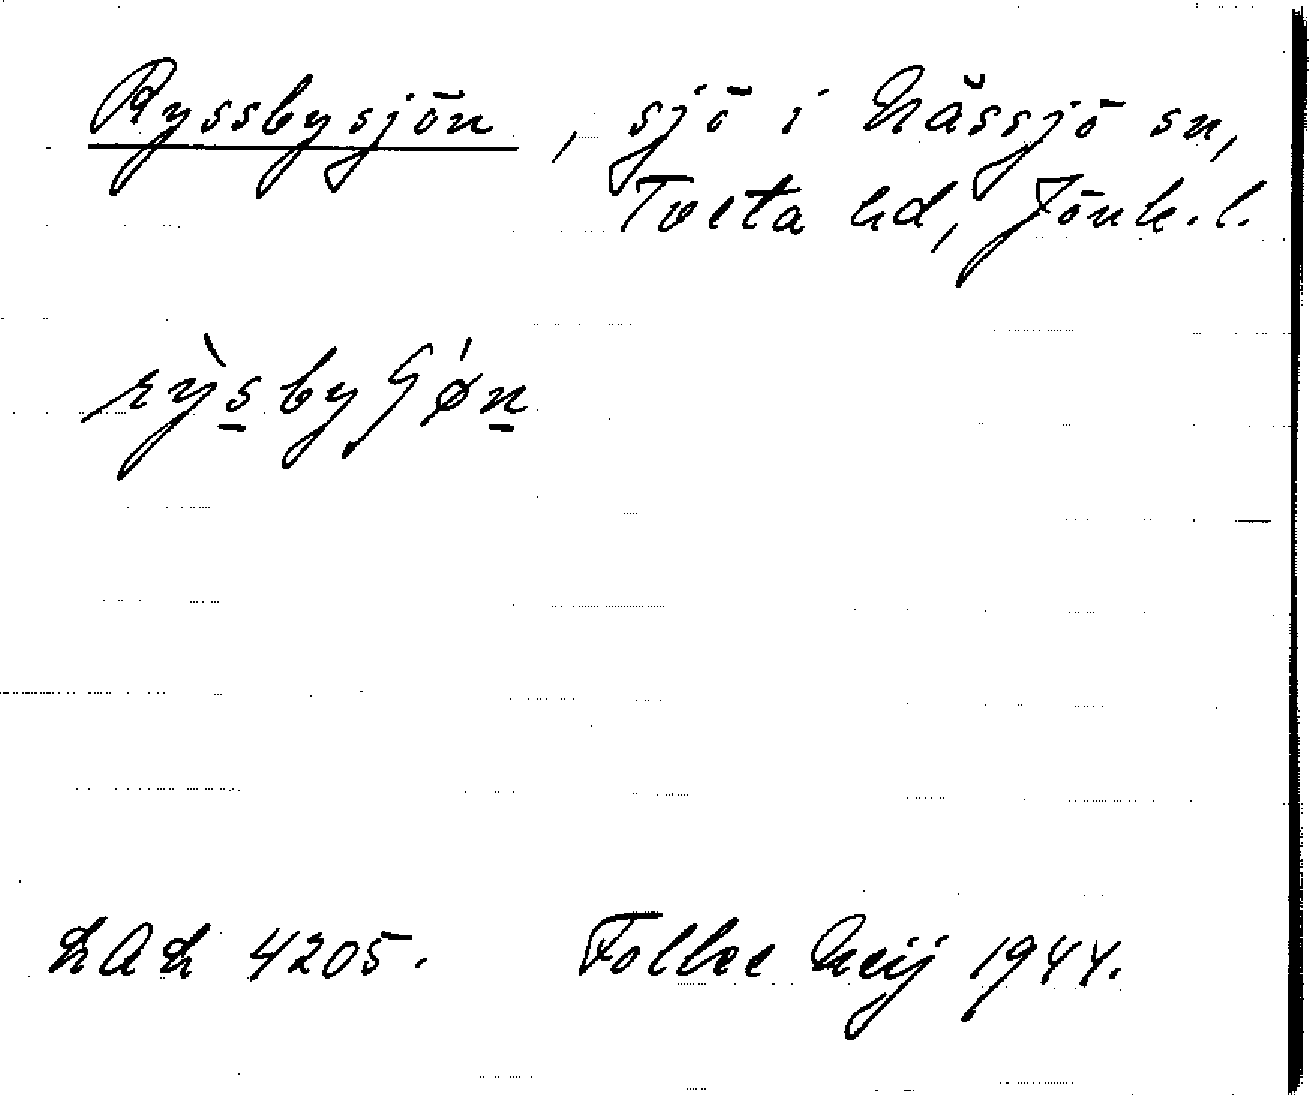 Ryssbysjön, sjö i Nässjö sn,
Tveta hd, Jönk.l.
rỳsbyʃǿn
LAL 4205. Folke Neij 1944.